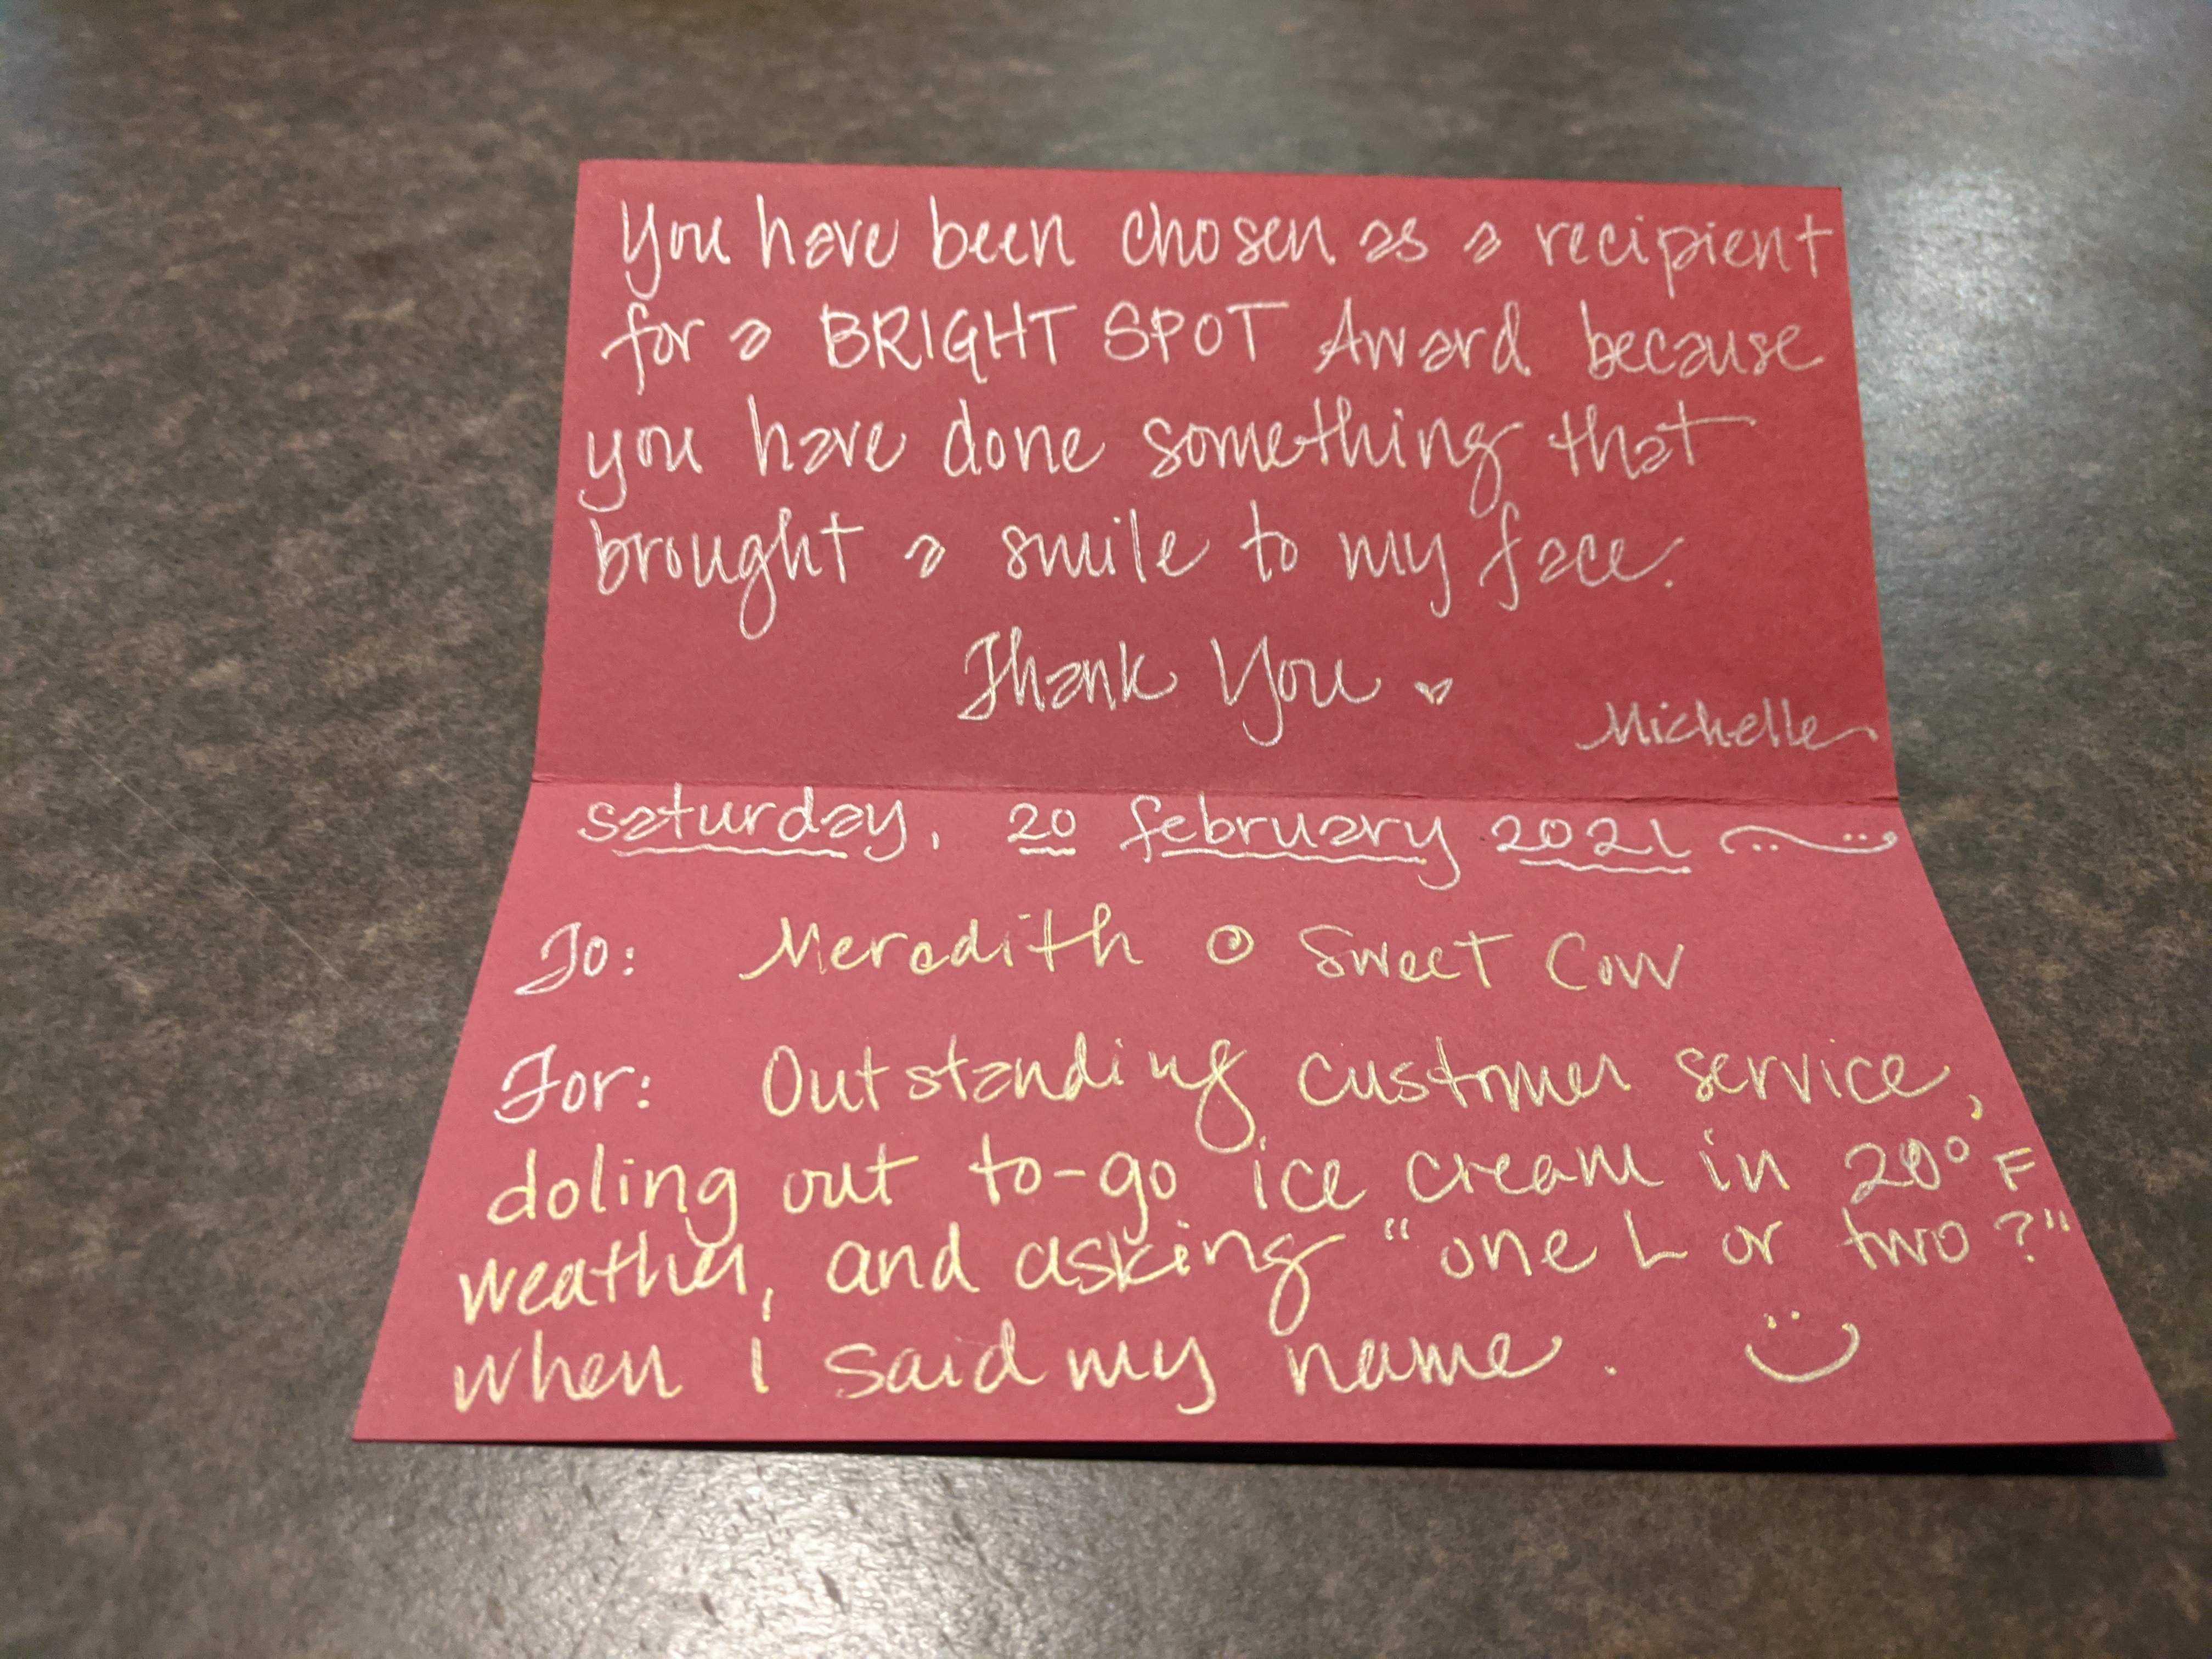 You have been chosen as a recipient
for a BRIGHT SPOT Award because
you have done something that
brought a smile to my face.
Thank You ♥
Michelle
saturday, 20 february 2021
To: Meredith @ Sweet Cow
For: Outstanding customer service,
doling out to-go ice cream in 20° F
weather, and asking "one L or two?"
when i said my name.